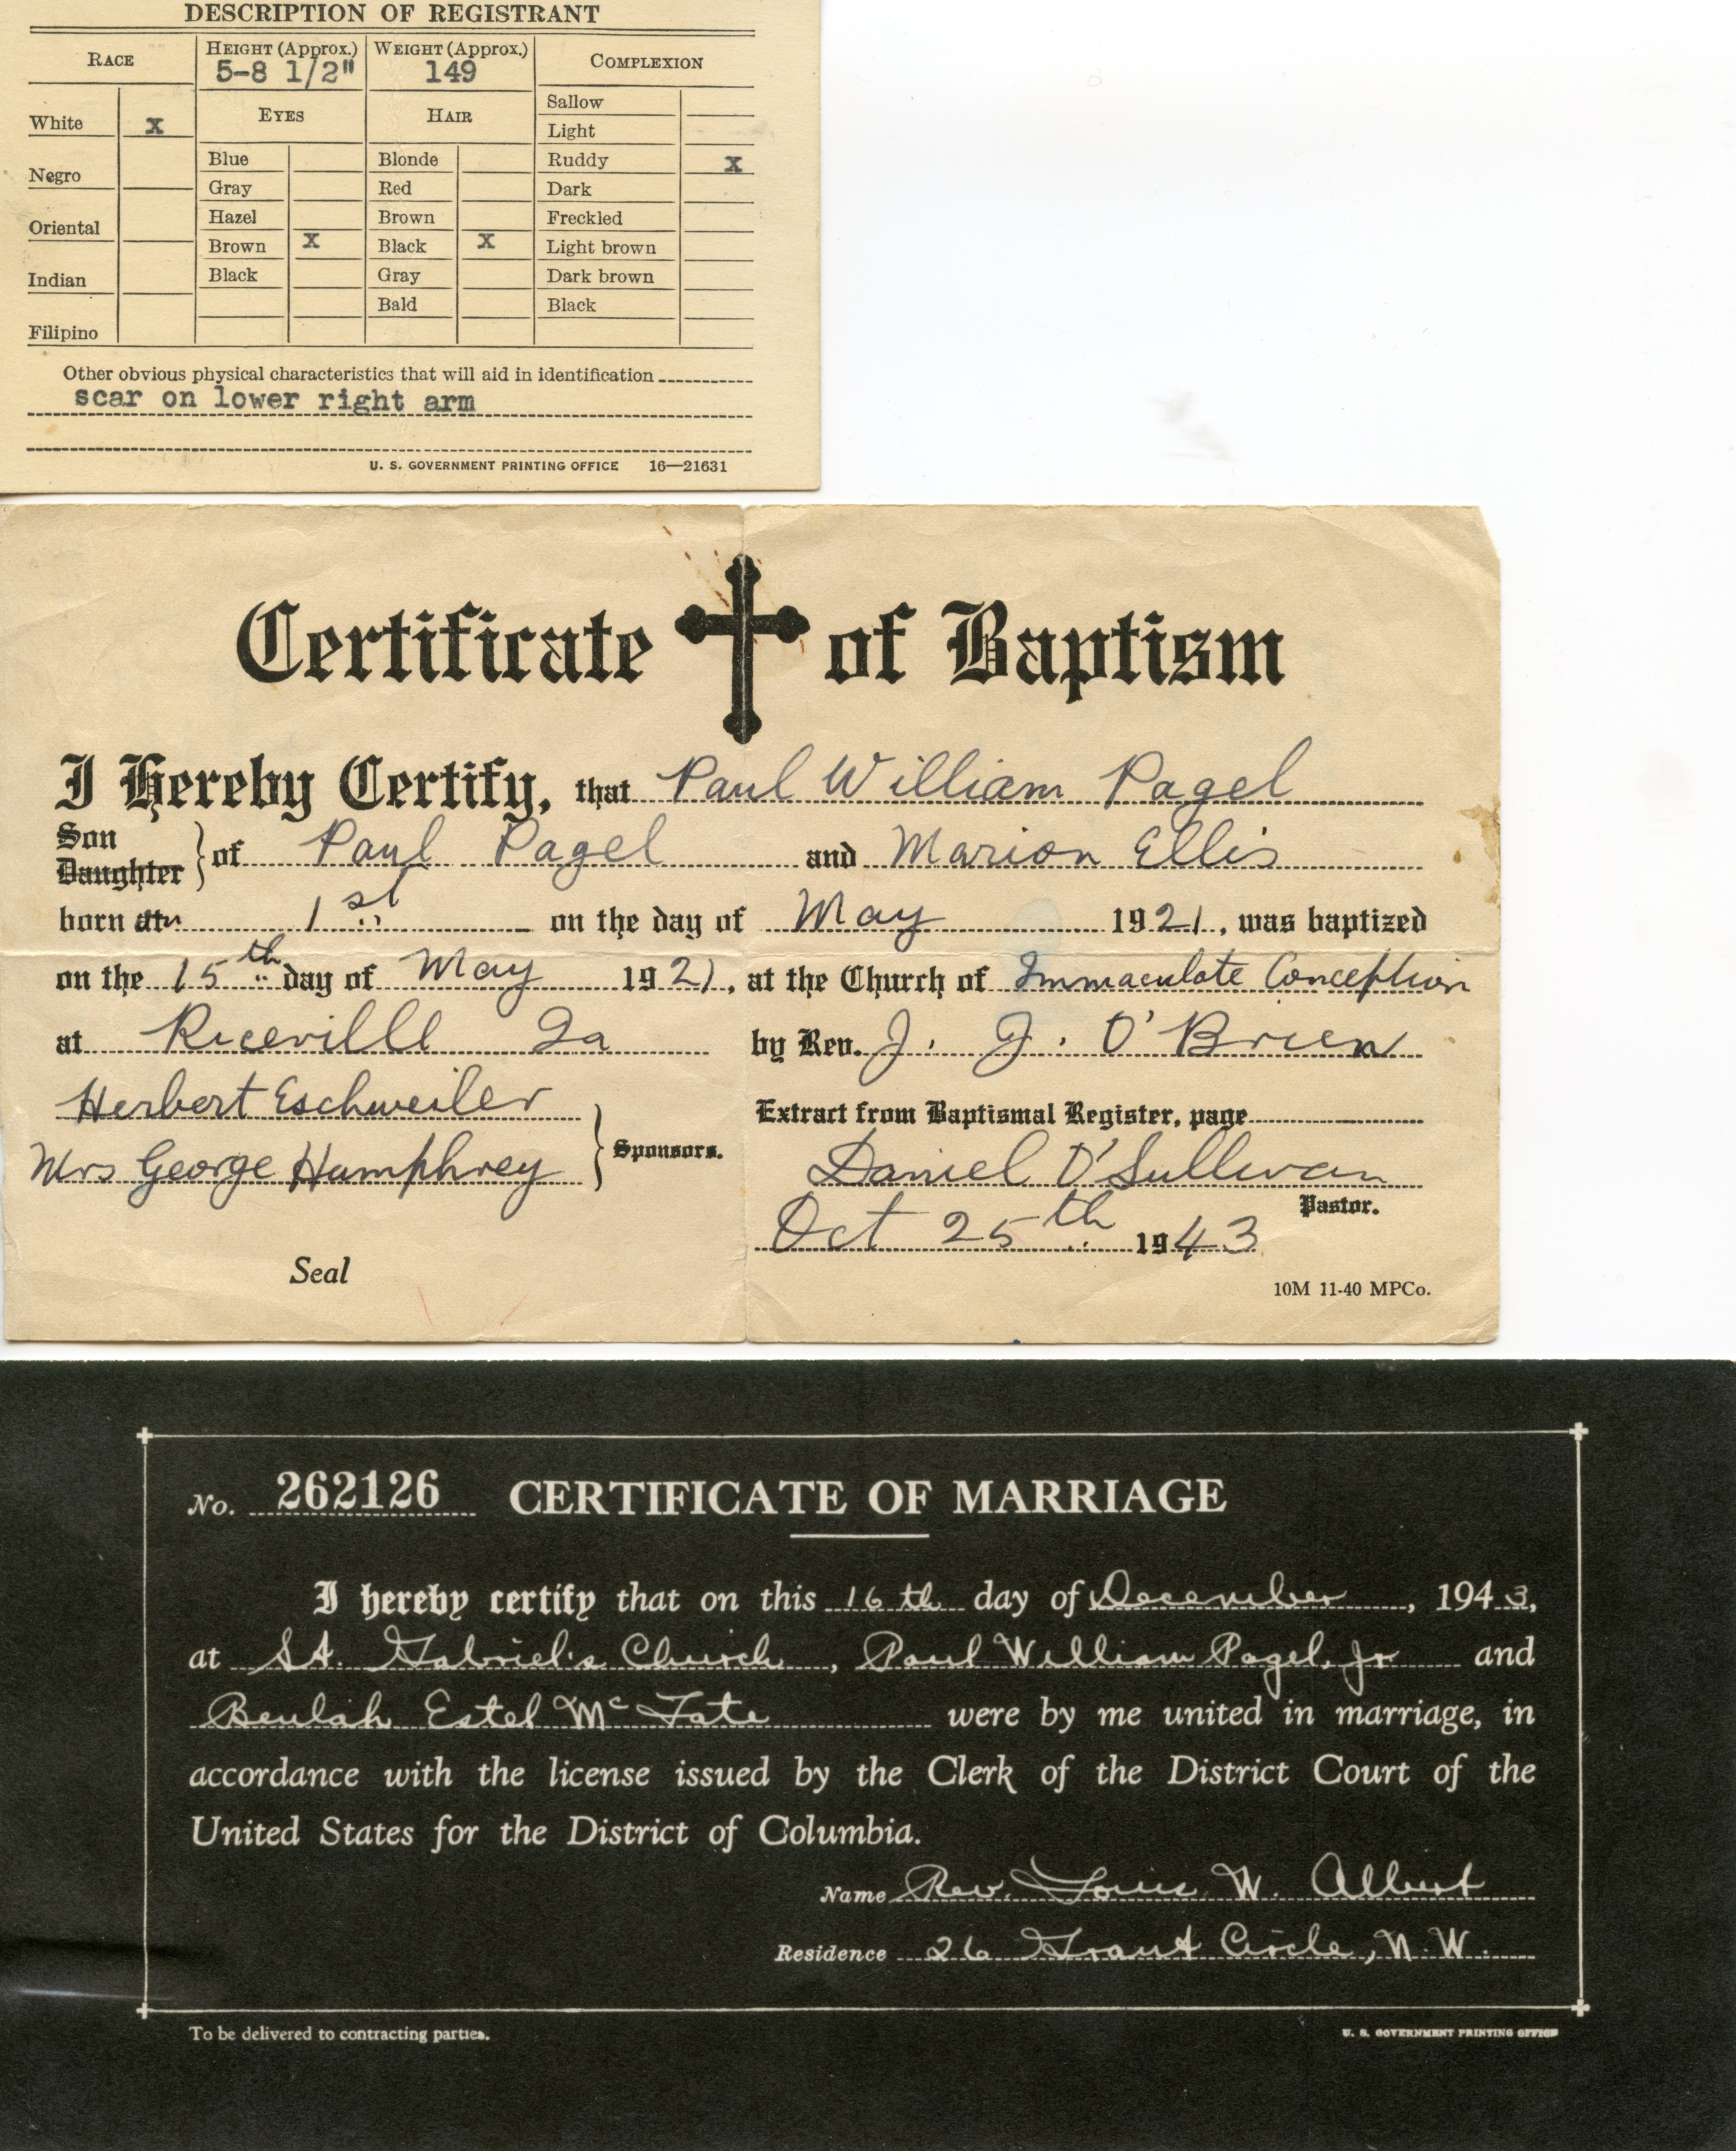 DESCRIPTION OF REGISTRANT
RACE HEIGHT (Approx.) WEIGHT (Approx.) COMPLEXION
5-8 1/2" 149
EYES HAIR
White x
Negro
Oriental
Indian
Filipino
Blue
Gray
Hazel
Brown x
Black
Blonde
Red
Brown
Black x
Gray
Bald
Sallow
Light
Ruddy x
Dark
Freckled
Light brown
Dark brown
Black
Other obvious physical characteristics that will aid in identification
scar on lower right arm
U. S. GOVERNMENT PRINTING OFFICE 16—21631
Certificate of Baptism
I Hereby Certify, that Paul William Pagel
Son
Daughter } of Paul Pagel and Marion Ellis
born on 1st on the day of May 1921, was baptized
on the 15th day of May 1921, at the Church of Immaculate Conception
at Riceville Ia by Rev. J. J. O'Brien
Herbert Eschweiler Extract from Baptismal Register, page
Mrs George Humphrey } Sponsors. Daniel O'Sullivan
Pastor.
Oct 25th 1943
Seal
10M 11-40 MPCo.
No. 262126 CERTIFICATE OF MARRIAGE
I hereby certify that on this 16th day of December, 1943,
at St. Gabriel's Church, Paul William Pagel, Jr and
Beulah Estel McTate were by me united in marriage, in
accordance with the license issued by the Clerk of the District Court of the
United States for the District of Columbia.
Name Rev. Louis W. Albert
Residence 26 Grant Circle, N.W.
To be delivered to contracting parties. U. S. GOVERNMENT PRINTING OFFICE